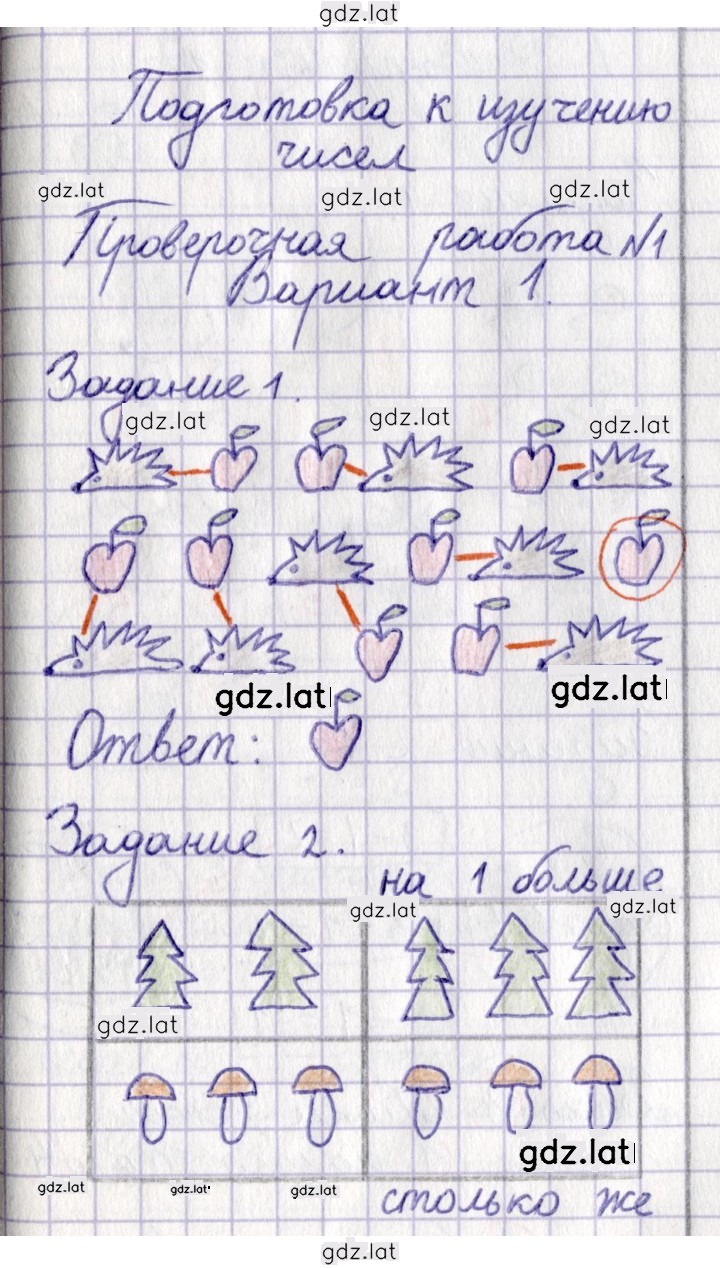 gdz.lat
Подготовка к изучению
чисел
gdz.lat gdz.lat gdz.lat
Проверочная работа №1
Вариант 1.
Задание 1.
gdz.lat gdz.lat gdz.lat
gdz.lat gdz.lat
Ответ:
Задание 2.
на 1 больше
gdz.lat gdz.lat
gdz.lat
gdz.lat
gdz.lat gdz.lat gdz.lat
столько же
gdz.lat